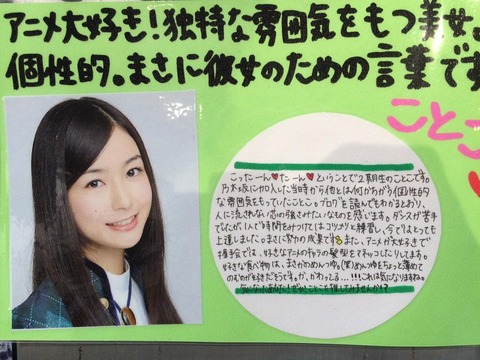 アニメ大好き!独特な雰囲気をもつ美女。
個性的。まさに彼女のための言葉です
ことこ
こったーん♥たーん♥ということで2期生のことこです。
乃木坂に加入した当時から他とは何かちがう個性的
な雰囲気をもっていたことこ。ブログを読んでもわかるとおり、
人に流されない芯の強さみたいなものを感じます。ダンスが苦手
でしたが、1人で時間をみつけてはコツコツと練習し、今ではとっても
上達しました。まさに努力の成果です。また、アニメが大好きで
握手会では、好きなアニメのキャラの髪型をマネっこしたりしてます。
好きな食べ物は、まさかのめんつゆ。(笑)めんつゆをちょっと薄めて
のむのが好きだそうです。か、かわってる...!!!これは気になりますね。
気になったあなた!ぜひことこを推してみませんか?